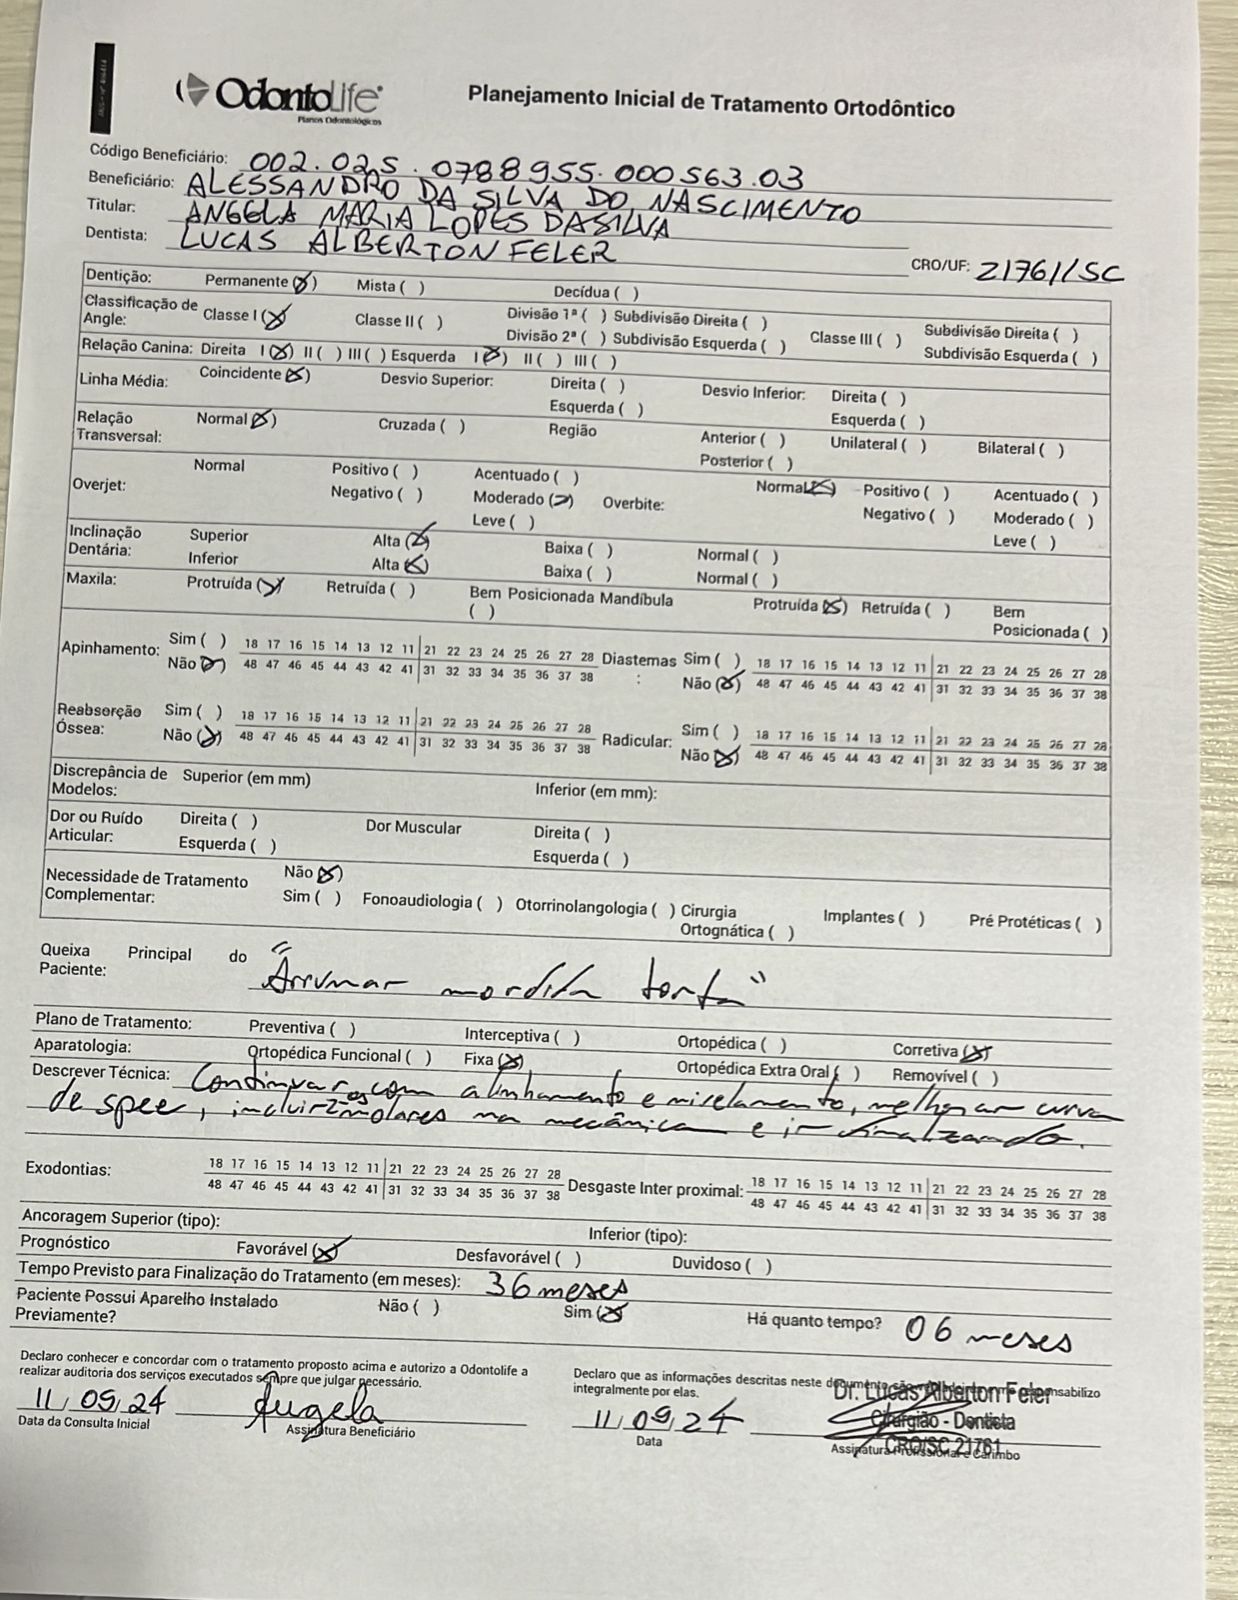 OdontoLife
Planos Odontológicos
Planejamento Inicial de Tratamento Ortodôntico
Código Beneficiário: 002.025.0788955.000563.03
Beneficiário: ALESSANDRO DA SILVA DO NASCIMENTO
Titular: ANGELA MARIA LOPES DA SILVA
Dentista: LUCAS ALBERTON FELER CRO/UF: 21761/SC
Dentição: Permanente (X) Mista ( ) Decídua ( )
Classificação de Angle: Classe I (X) Classe II ( ) Divisão 1ª ( ) Subdivisão Direita ( ) Divisão 2ª ( ) Subdivisão Esquerda ( ) Classe III ( ) Subdivisão Direita ( ) Subdivisão Esquerda ( )
Relação Canina: Direita I (X) II ( ) III ( ) Esquerda I (X) II ( ) III ( )
Linha Média: Coincidente (X) Desvio Superior: Direita ( ) Esquerda ( ) Desvio Inferior: Direita ( ) Esquerda ( )
Relação Transversal: Normal (X) Cruzada ( ) Região Anterior ( ) Posterior ( ) Unilateral ( ) Bilateral ( )
Overjet: Normal Positivo ( ) Negativo ( ) Acentuado ( ) Moderado (X) Leve ( ) Overbite: Normal (X) Positivo ( ) Negativo ( ) Acentuado ( ) Moderado ( ) Leve ( )
Inclinação Dentária: Superior Alta (X) Baixa ( ) Normal ( )
Inferior Alta (X) Baixa ( ) Normal ( )
Maxila: Protruída (X) Retruída ( ) Bem Posicionada ( ) Mandíbula Protruída (X) Retruída ( ) Bem Posicionada ( )
Apinhamento: Sim ( ) 18 17 16 15 14 13 12 11 21 22 23 24 25 26 27 28 Diastemas: Sim ( ) 18 17 16 15 14 13 12 11 21 22 23 24 25 26 27 28
Não (X) 48 47 46 45 44 43 42 41 31 32 33 34 35 36 37 38 Não (X) 48 47 46 45 44 43 42 41 31 32 33 34 35 36 37 38
Reabsorção Óssea: Sim ( ) 18 17 16 15 14 13 12 11 21 22 23 24 25 26 27 28 Radicular: Sim ( ) 18 17 16 15 14 13 12 11 21 22 23 24 25 26 27 28
Não (X) 48 47 46 45 44 43 42 41 31 32 33 34 35 36 37 38 Não (X) 48 47 46 45 44 43 42 41 31 32 33 34 35 36 37 38
Discrepância de Modelos: Superior (em mm) Inferior (em mm):
Dor ou Ruído Articular: Direita ( ) Esquerda ( ) Dor Muscular Direita ( ) Esquerda ( )
Necessidade de Tratamento Complementar: Não (X)
Sim ( ) Fonoaudiologia ( ) Otorrinolangologia ( ) Cirurgia Ortognática ( ) Implantes ( ) Pré Protéticas ( )
Queixa Principal do Paciente: "Arrumar mordida torta"
Plano de Tratamento: Preventiva ( ) Interceptiva ( ) Ortopédica ( ) Corretiva (X)
Aparatologia: Ortopédica Funcional ( ) Fixa (X) Ortopédica Extra Oral ( ) Removível ( )
Descrever Técnica: Continuar com alinhamento e nivelamento, melhorar curva
de spee, incluir 2ºs molares na mecânica e ir finalizando.
Exodontias: 18 17 16 15 14 13 12 11 21 22 23 24 25 26 27 28 Desgaste Inter proximal: 18 17 16 15 14 13 12 11 21 22 23 24 25 26 27 28
48 47 46 45 44 43 42 41 31 32 33 34 35 36 37 38 48 47 46 45 44 43 42 41 31 32 33 34 35 36 37 38
Ancoragem Superior (tipo): Inferior (tipo):
Prognóstico Favorável (X) Desfavorável ( ) Duvidoso ( )
Tempo Previsto para Finalização do Tratamento (em meses): 36 meses
Paciente Possui Aparelho Instalado Previamente? Não ( ) Sim (X) Há quanto tempo? 06 meses
Declaro conhecer e concordar com o tratamento proposto acima e autorizo a Odontolife a
realizar auditoria dos serviços executados sempre que julgar necessário.
11/09/24 Angela
Data da Consulta Inicial Assinatura Beneficiário
Declaro que as informações descritas neste documento são
integralmente por elas.
Dr. Lucas Alberton Feler
Cirurgião - Dentista
CRO/SC 21761
11/09/24
Data Assinatura Profissional e Carimbo